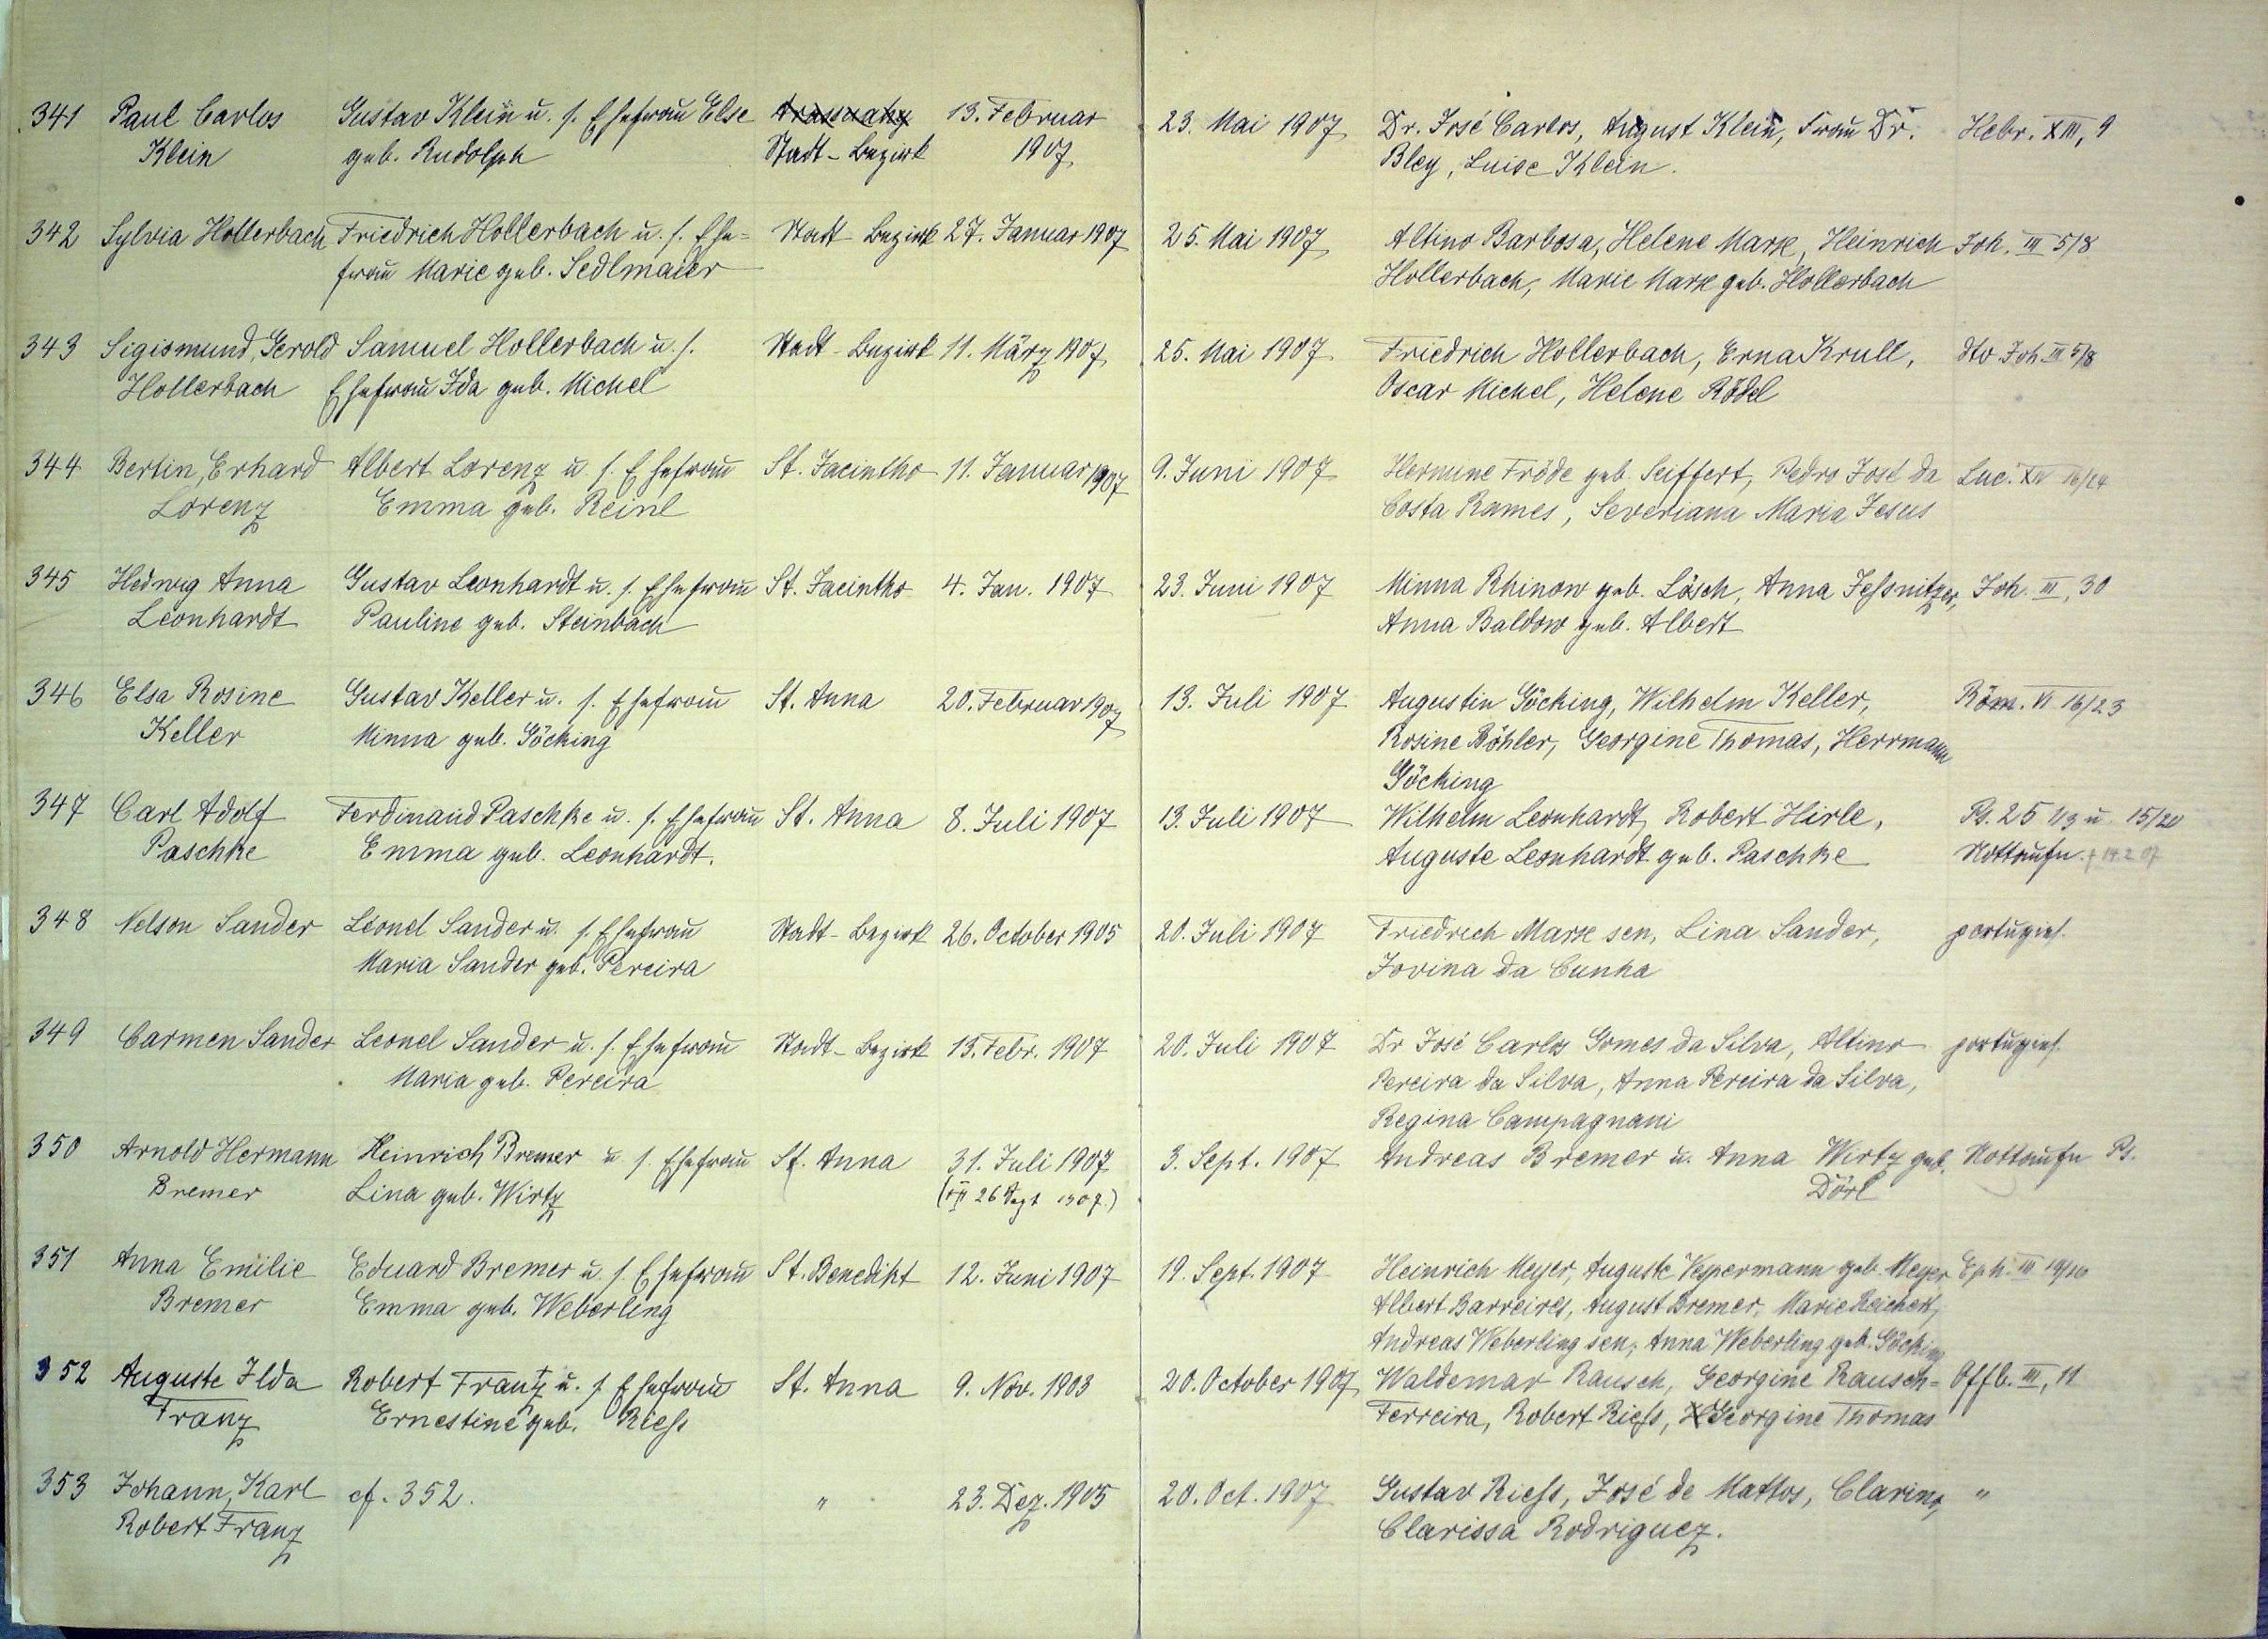 341 Paul Carlos Gustav Klein u. s. Ehefrau Else 13. Februar 23. Mai 1907 Dr. José Carlos, August Klein, Frau Dr. Hebr. XIII, 9
Klein geb. Rudolph Stadt-Bezirk 1907 Bley, Luise Klein.
342 Sylvia Hollerbach Friedrich Hollerbach u. s. Ehe- Stadt-Bezirk 27. Januar 1907 25. Mai 1907 Altino Barbosa, Helene Marx, Heinrich Joh. III 5/8
frau Marie geb. Sedlmaier Hollerbach, Marie Marx geb. Hollerbach
343 Sigismund, Gerold Samuel Hollerbach u. s. Stadt-Bezirk 11. März 1907 25. Mai 1907 Friedrich Hollerbach, Erna Krull, dto Joh. III 5/8
Hollerbach Ehefrau Ida geb. Michel Oscar Michel, Helene Rödel
344 Bertin, Erhard Albert Lorenz u s. Ehefrau St. Jacintho 11. Januar 1907 9. Juni 1907 Hermine Fröde geb. Seiffert, Pedro José da Luc. XIV 16/24
Lorenz Emma geb. Reinl Costa Rames, Severiana Maria Jesus
345 Hedwig Anna Gustav Leonhardt u. s. Ehefrau St. Jacintho 4. Jan. 1907 23. Juni 1907 Minna Rhinow geb. Lösch, Anna Jessnitzer, Joh. III, 30
Leonhardt Pauline geb. Steinbach Anna Baldow geb. Albert
346 Elsa Rosine Gustav Keller u. s. Ehefrau St. Anna 20. Februar 1907 13. Juli 1907 Augustin Göcking, Wilhelm Keller, Röm. VI 16/23
Keller Minna geb. Göcking Rosine Böhler, Georgine Thomas, Herrmann
Göcking
347 Carl Adolf Ferdinand Paschke u. s. Ehefrau St. Anna 8. Juli 1907 13. Juli 1907 Wilhelm Leonhardt, Robert Hirle, Ps. 25 1/3 u 15/20
Paschke Emma geb. Leonhardt. Auguste Leonhardt geb. Paschke Nottaufe
348 Nelson Sander Leonel Sander u. s. Ehefrau Stadt-Bezirk 26. October 1905 20. Juli 1907 Friedrich Marx sen, Lina Sander, portugies.
Maria Sander geb. Pereira Jovina da Cunha
349 Carmen Sander Leonel Sander u. s. Ehefrau Stadt-Bezirk 15. Febr. 1907 20. Juli 1907 Dr José Carlos Gomes da Silva, Altino portugies.
Maria geb. Pereira Pereira da Silva, Anna Pereira da Silva,
Regina Campagnani
350 Arnold Hermann Heinrich Bremer u. s. Ehefrau St. Anna 31. Juli 1907 3. Sept. 1907 Andreas Bremer u. Anna Wirtz geb. Nottaufe Ps.
Bremer Lina geb. Wirtz 26 Sept 1907.) Dörl
351 Anna Emilie Eduard Bremer u. s. Ehefrau St. Benedikt 12. Juni 1907 19. Sept. 1907 Heinrich Meyer, Auguste Vespermann geb. Meyer Eph. III
Bremer Emma geb. Weberling Albert Barreires, August Bremer, Marie Reichelt,
Andreas Weberling sen, Anna Weberling geb. Göcking
352 Auguste Ilda Robert Frantz u. s. Ehefrau St. Anna 9. Nov. 1903 20. October 1907 Waldemar Rausch, Georgine Rausch- Offb. III, 11
Franz Ernestine geb. Riess Ferreira, Robert Riess, Georgine Thomas
353 Johann, Karl cf. 352. " 23. Dez. 1905 20. Oct. 1907 Gustav Riess, José de Mattos, Clarino, "
Robert Franz Clarissa Rodriguez.